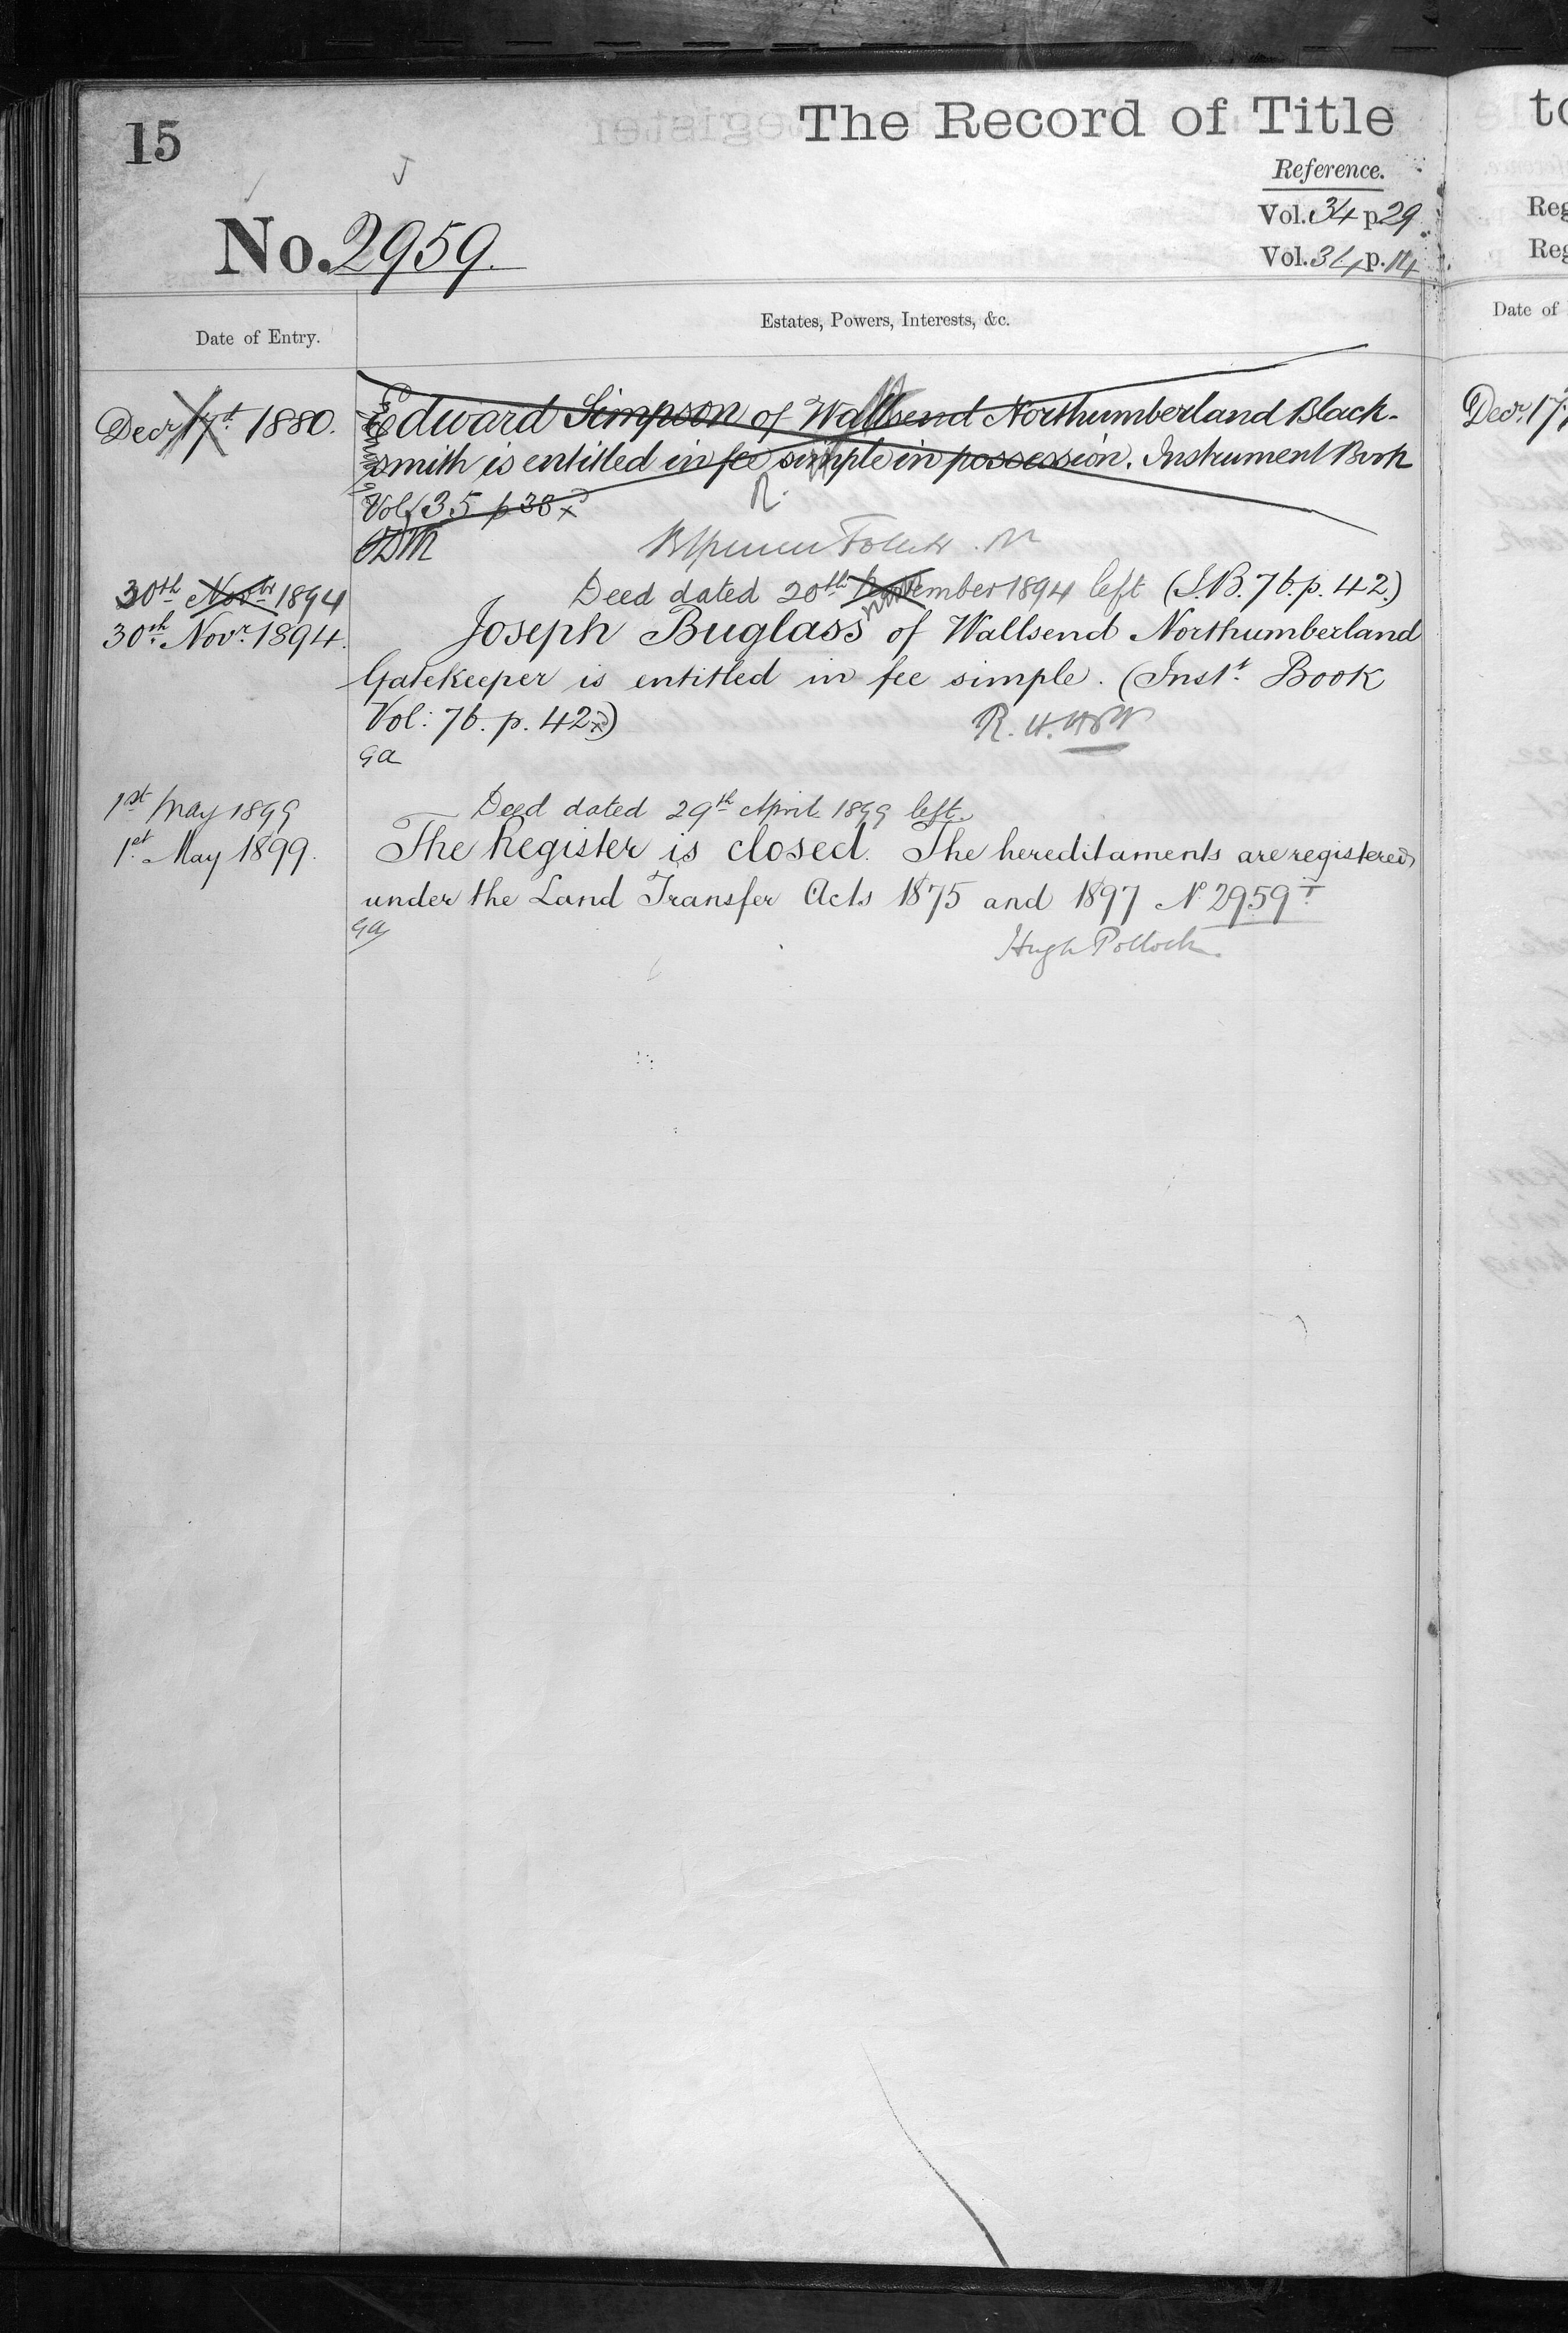 15
The Record of Title
Reference.
Vol. 34 p. 29
Vol. 34 p. 114
No. 2959.
Date of Entry.
Estates, Powers, Interests, &c.
Decr 17th 1880.
Edward Simpson of Wallsend Northumberland Black-
smith is entitled in fee simple in possession. Instrument Book
Vol 35 p 38
30th Novbr 1894
Deed dated 20th November 1894 left (I.B. 76. p. 42.)
30th Novr 1894.
Joseph Buglass of Wallsend Northumberland
Gatekeeper is entitled in fee simple. (Instt Book
Vol: 76. p. 42)
R. H.
ga
1st May 1899
Deed dated 29th April 1899 left.
1st May 1899.
The Register is closed. The hereditaments are registered
under the Land Transfer Acts 1875 and 1897 No 2959
ga
Hugh Pollock.
to
Reg
Reg
Date of
Decr 17